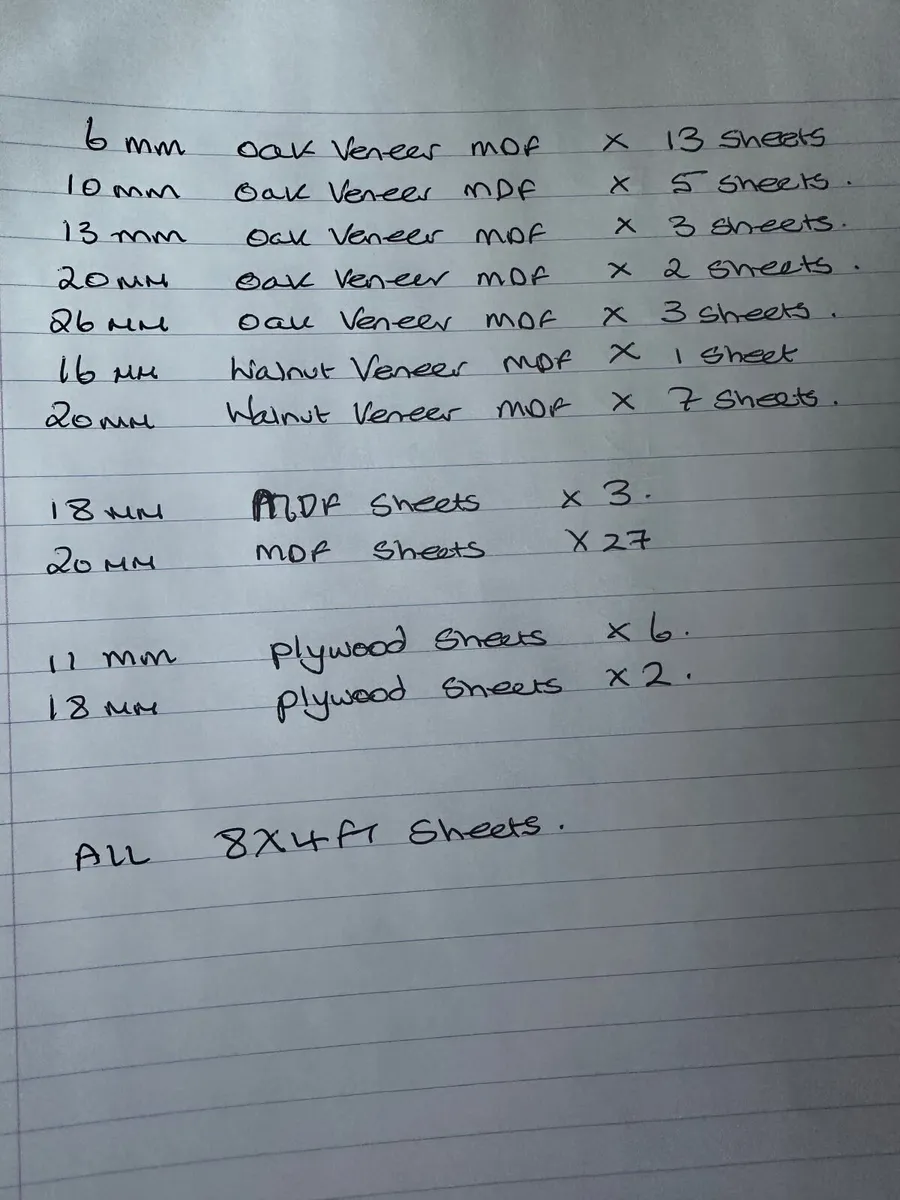 6 mm Oak Veneer MDF x 13 sheets
10 mm Oak Veneer MDF x 5 sheets.
13 mm Oak Veneer MDF x 3 sheets.
20 mm Oak Veneer MDF x 2 sheets.
26 mm Oak Veneer MDF x 3 sheets.
16 mm Walnut Veneer MDF x 1 sheet
20 mm Walnut Veneer MDF x 7 sheets.
18 mm MDF sheets x 3.
20 mm MDF sheets x 27
11 mm plywood sheets x 6.
18 mm plywood sheets x 2.
ALL 8x4 ft sheets.